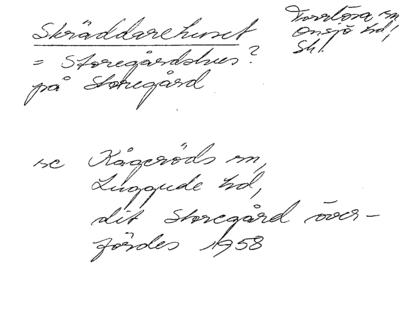 Skräddarehuset
= Storegårdshus?
på Storegård
Torrlösa sn
Onsjö hd,
Sk.
se Kågeröds sn,
Luggude hd,
dit Storegård över-
fördes 1958